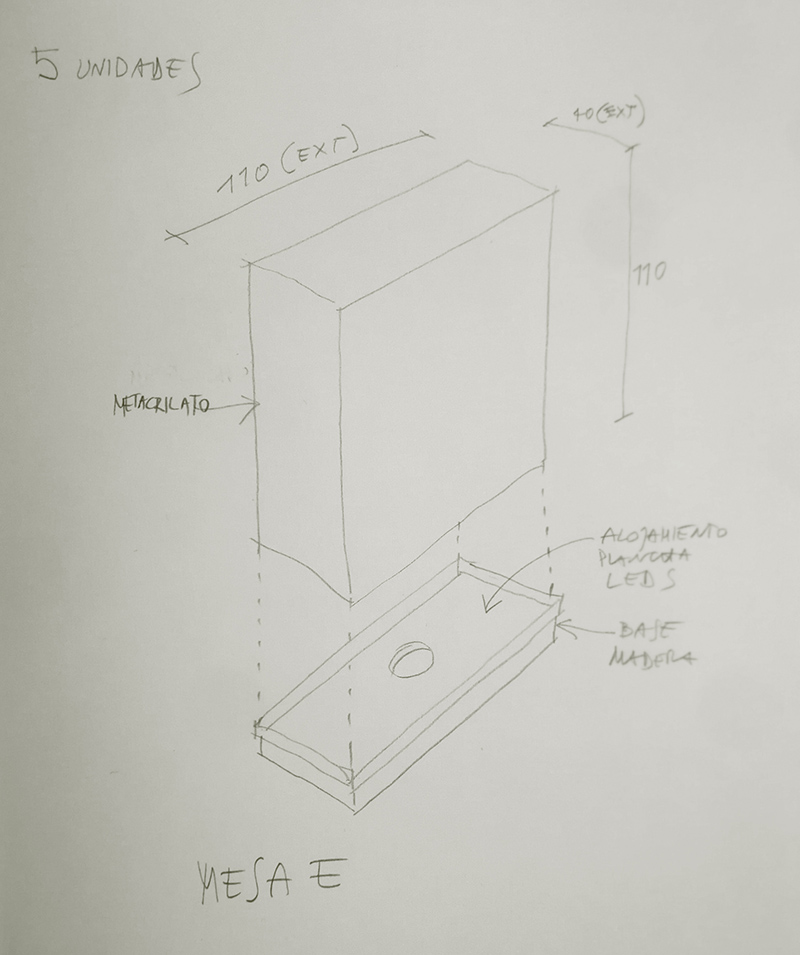 5 UNIDADES
110 (EXT)
40 (EXT)
110
METACRILATO
ALOJAMIENTO
PLANCHA
LEDS
BASE
MADERA
MESA E